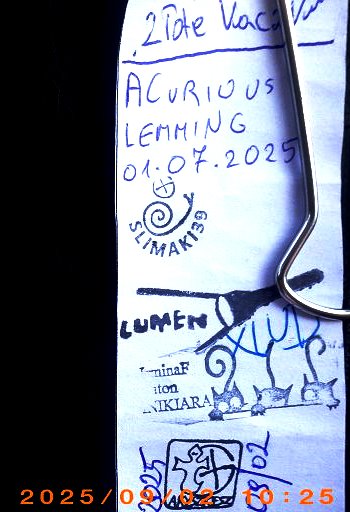 2Tote
ACURIOUS
LEMMING
01.07.2025
SLIMAKI39
LUMEN
minaF
iton
NIKIARA
2025
09/02
2025/09/02 10:25